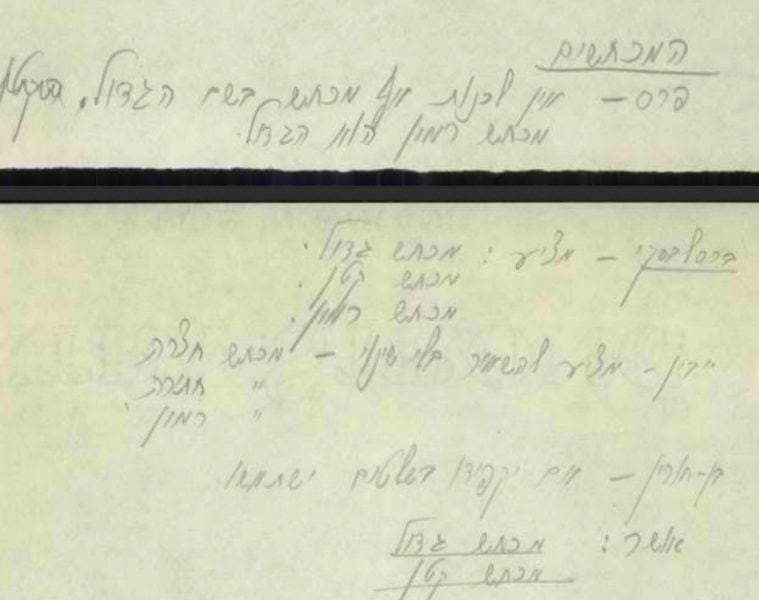 המכתשים
פרס – אין לכנות אף מכתש בשם הגדול,
מכתש רמון הוא הגדול.
ברסלבסקי – מציע: מכתש גדול.
מכתש קטן.
מכתש רמון.
ידין – מציע להשאיר בלי שינוי – מכתש חצרה
" חתירה
" רמון
– אם יקפידו בשלטים ישתמשו
אושר: מכתש גדול
מכתש קטן